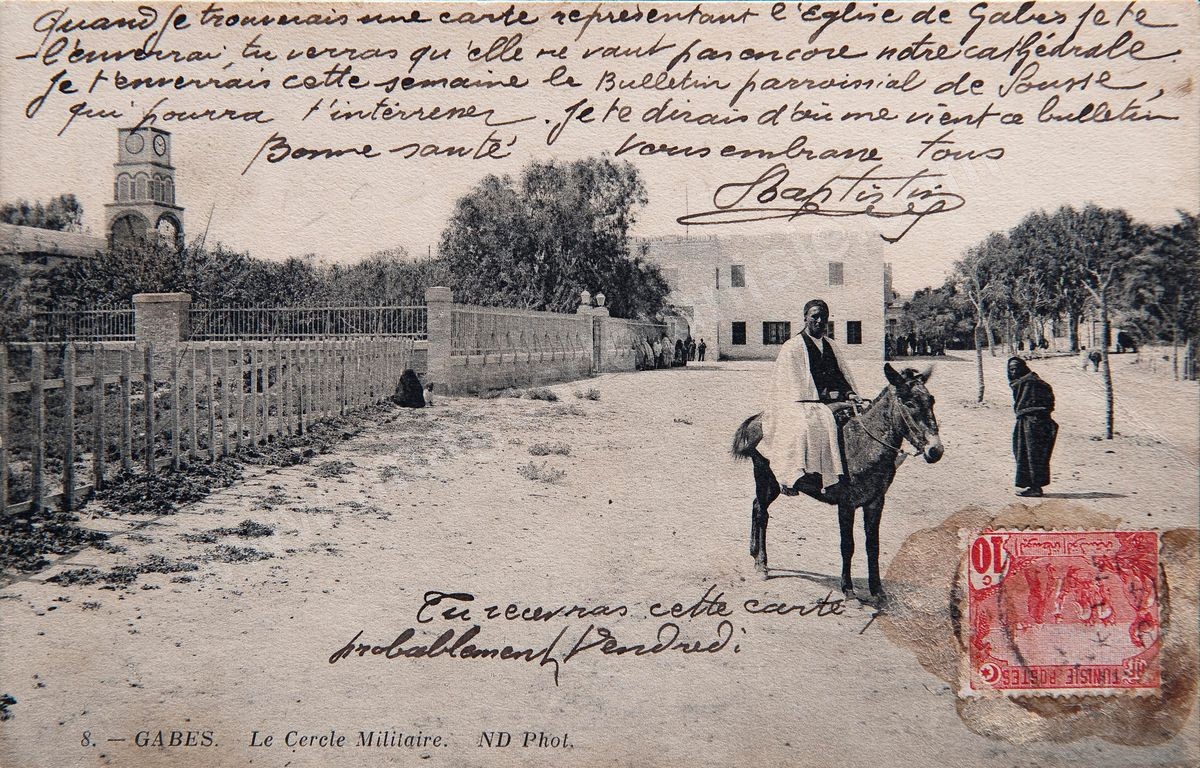 Quand je trouverais une carte représentant l'Eglise de Gabes je te
l'enverrai, tu verras qu'elle ne vaut pas encore notre cathédrale.
Je t'enverrais cette semaine le Bulletin parroissial de Sousse,
qui pourra t'intérresser. Je te dirais d'où me vient ce bulletin
Bonne santé Vous embrasse tous
Baptistin
Tu recevras cette carte
probablement Vendredi
8. — GABES. Le Cercle Militaire. ND Phot.
10 C
TUNISIE POSTES